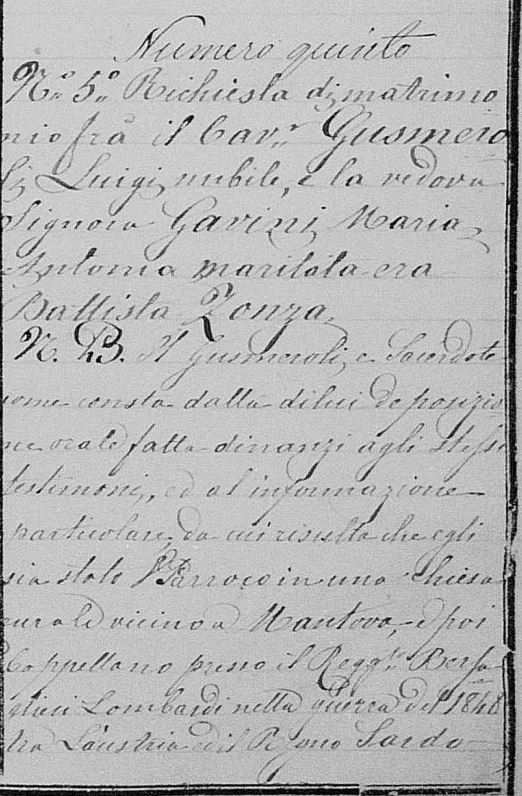 Numero quinto
N.o 5.o Richiesta di matrimo
nio frà il Cav.r Gusmero
li Luigi, nubile, e la vedova
Signora Gavini Maria
Antonia maritata era
Battista Zonza.
N. B. Il Gusmeroli, e Sacerdote
come consta dalla dilui deposizio
ne orale fatta dinanzi agli stessi
testimoni, ed al informazione
particolare, da cui risulta che egli
sia stato Parroco in una Chiesa
rurale vicino a Mantova, e poi
Cappellano presso il Regg.to Bersa
glieri Lombardi nella guerra del 1848
tra L'austria ed il Regno Sardo